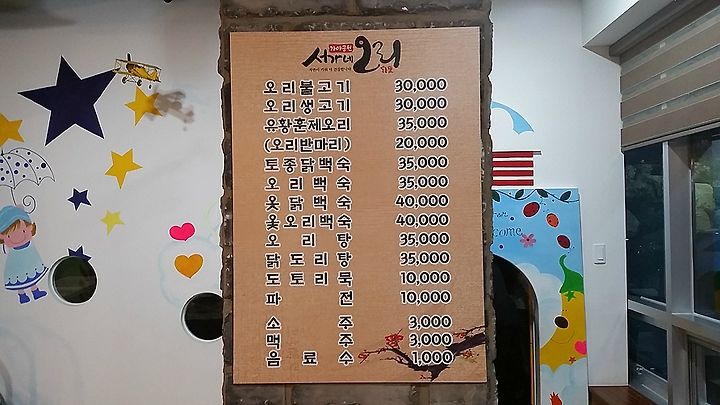 가야공원
서가네 오리
오리불고기 30,000
오리생고기 30,000
유황훈제오리 35,000
(오리반마리) 20,000
토종닭백숙 35,000
오리백숙 35,000
옻닭백숙 40,000
옻오리백숙 40,000
오리탕 35,000
닭도리탕 35,000
도토리묵 10,000
파전 10,000
소주 3,000
맥주 3,000
음료수 1,000
come